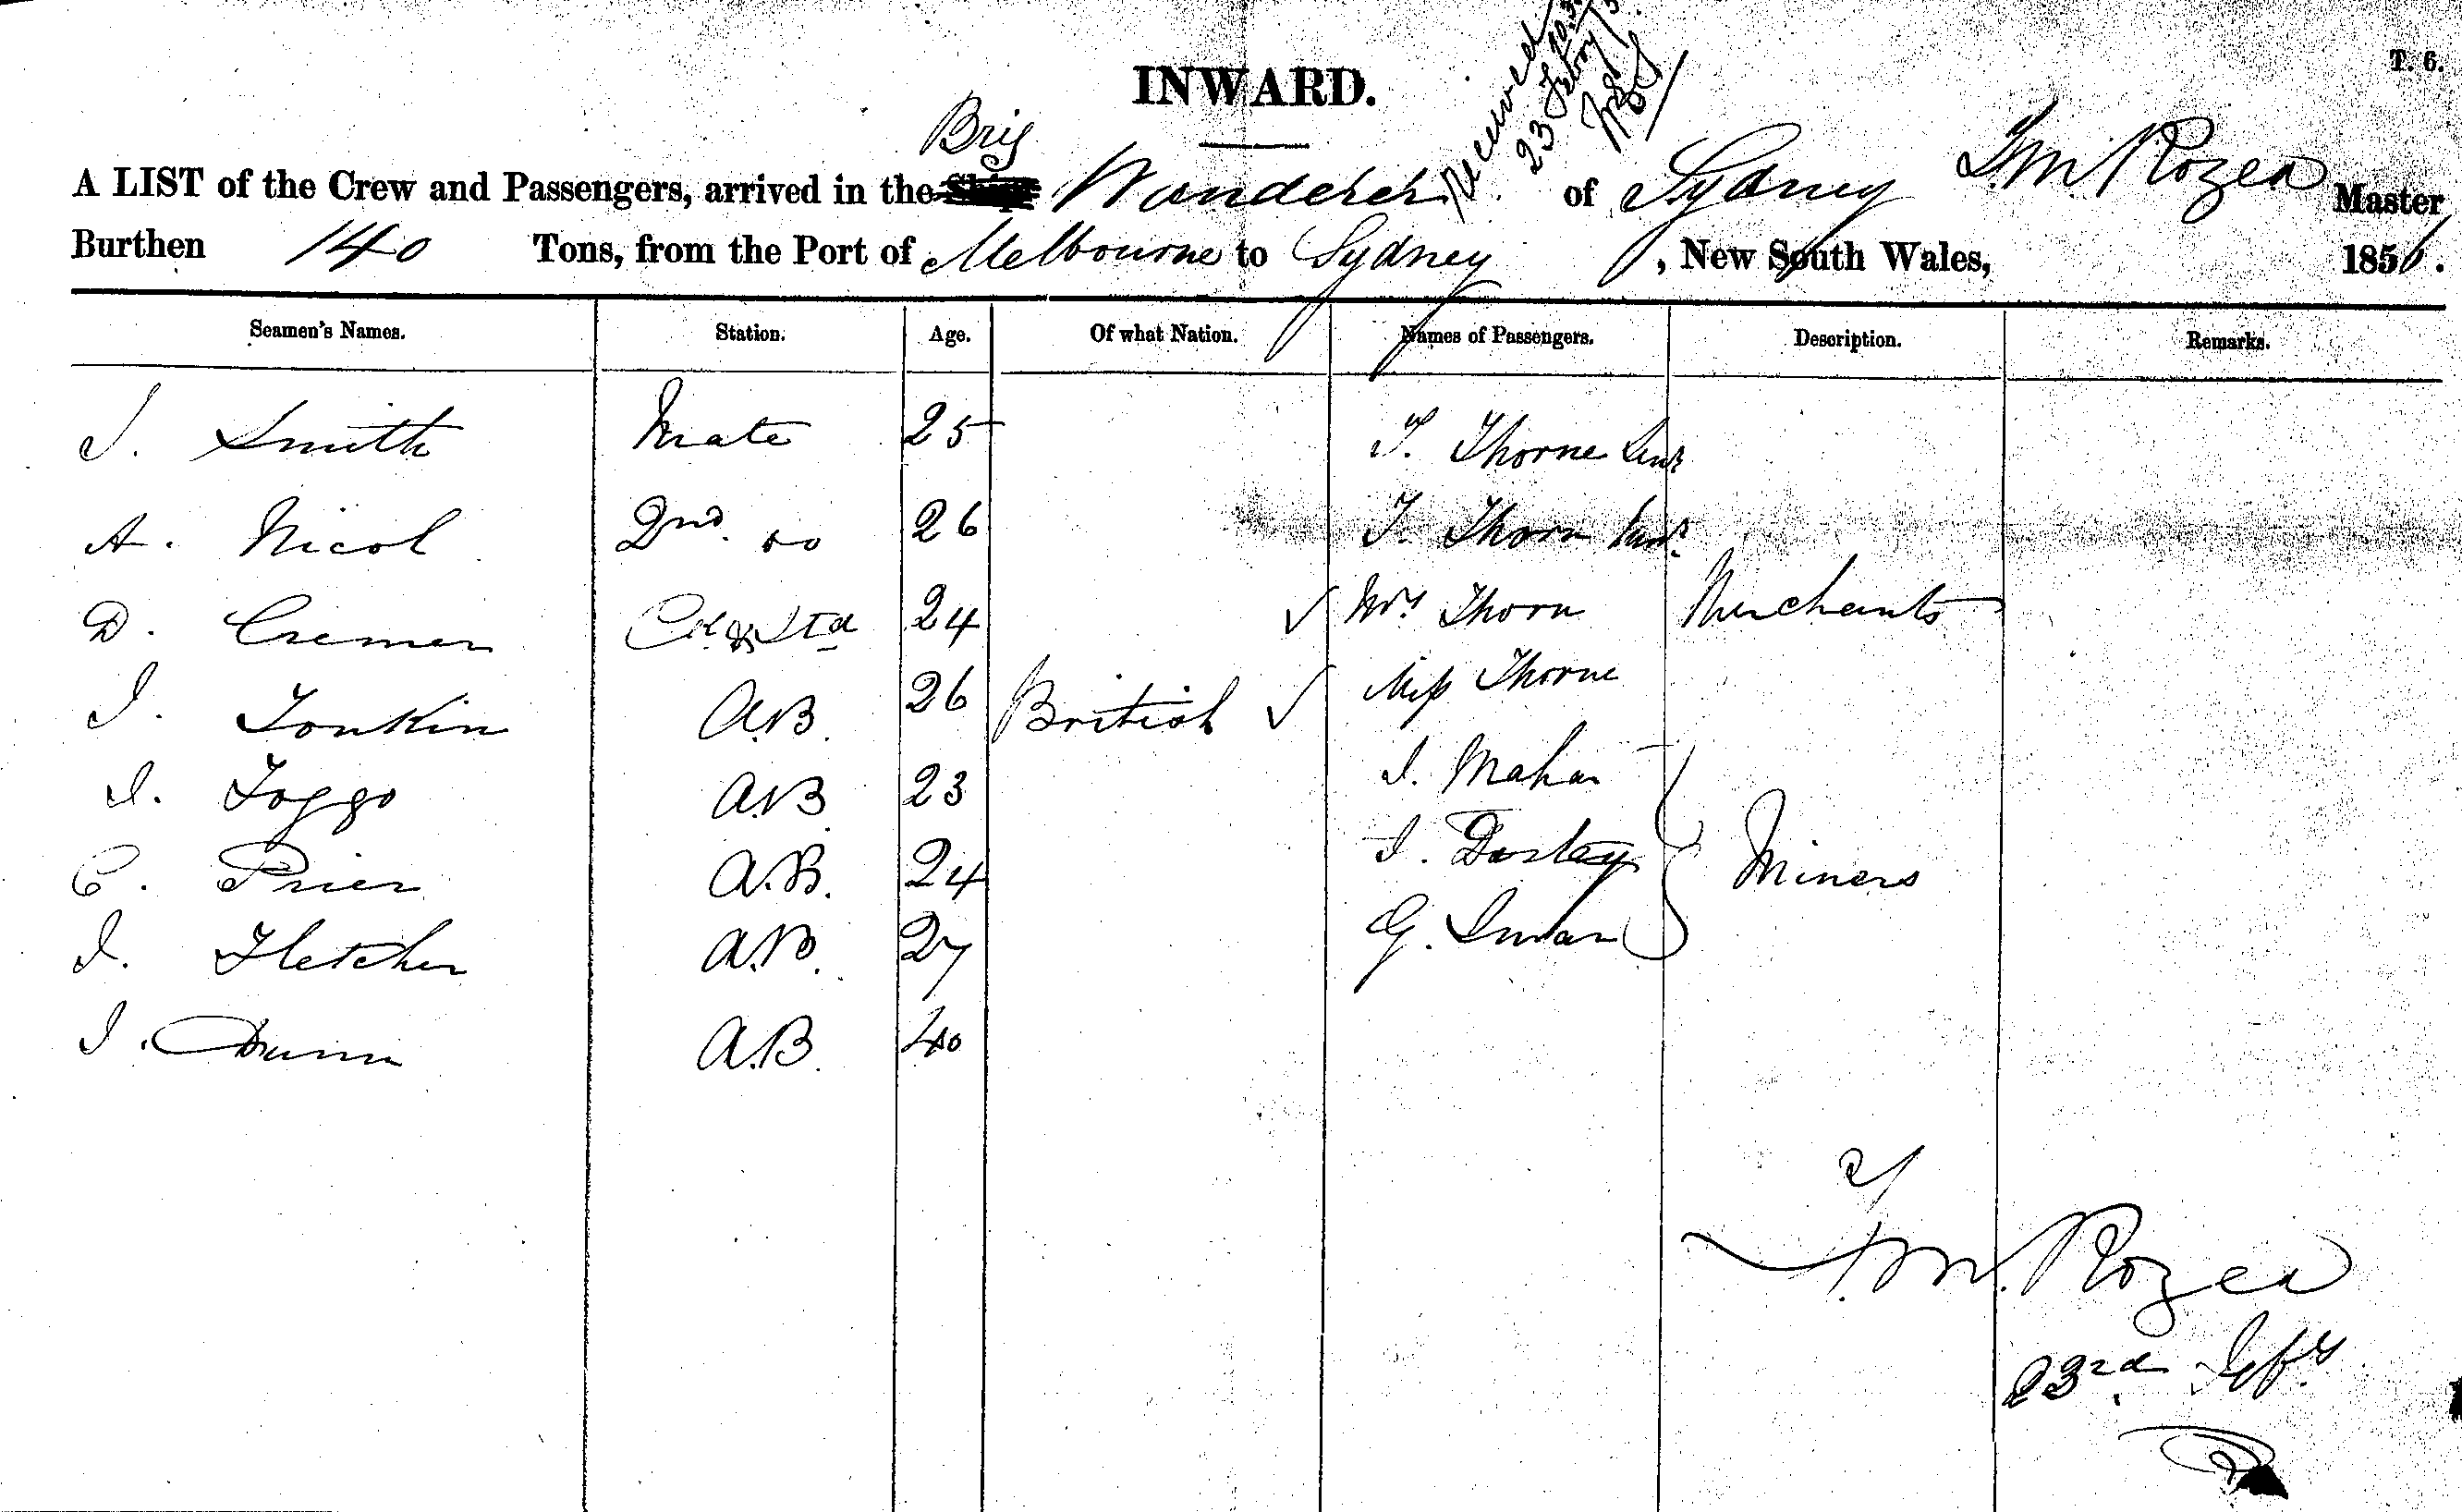 T. 6.
INWARD.
Received
23 Febry
Brig
A LIST of the Crew and Passengers, arrived in the Ship Wanderer of Sydney T. M Rozea Master
Burthen 140 Tons, from the Port of Melbourne to Sydney, New South Wales, 1856.
Seamen's Names. Station. Age. Of what Nation. Names of Passengers. Description. Remarks.
J. Smith Mate 25 T. Thorne Senr
A. Nicol 2nd. do 26 T. Thorn Junr.
D. Cremer Ck & Std 24 ✓ Mrs Thorn Merchants
J. Tonkin A.B. 26 British ✓ Miss Thorne
J. Foggo A.B 23 J. Mahar
C. Prier A.B. 24 J. Darley Miners
J. Fletcher A.B. 27 G.
J. Dunn A.B. 40
T. M. Rozea
23rd Feby